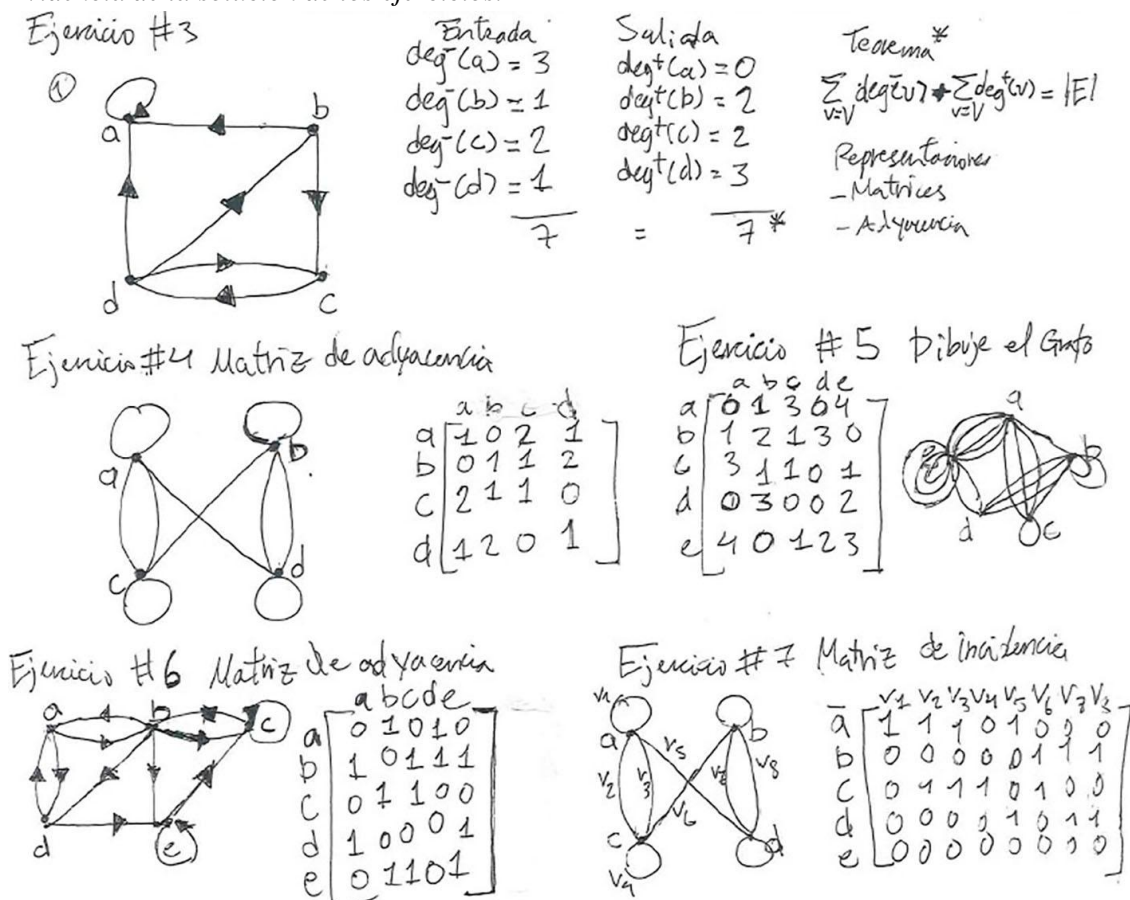 Ejercicio #3
1
a
b
c
d
Entrada
deg⁻(a) = 3
deg⁻(b) = 1
deg⁻(c) = 2
deg⁻(d) = 1
7
=
Salida
deg⁺(a) = 0
deg⁺(b) = 2
deg⁺(c) = 2
deg⁺(d) = 3
7*
Teorema*
∑ deg⁻(v) + ∑ deg⁺(v) = |E|
v=V v=V
Representaciones
- Matrices
- Adyacencia
Ejercicio #4 Matriz de adyacencia
a
b
c
d
a b c d
a 1 0 2 1
b 0 1 1 2
c 2 1 1 0
d 1 2 0 1
Ejercicio #5 Dibuje el Grafo
a b c d e
a 0 1 3 0 4
b 1 2 1 3 0
c 3 1 1 0 1
d 0 3 0 0 2
e 4 0 1 2 3
a
e
b
d
c
Ejercicio #6 Matriz de adyacencia
a
b
c
d
e
a b c d e
a 0 1 0 1 0
b 1 0 1 1 1
c 0 1 1 0 0
d 1 0 0 0 1
e 0 1 1 0 1
Ejercicio #7 Matriz de incidencia
a
b
V5
V2
V3
V8
V6
c
d
V4
V1 V2 V3 V4 V5 V6 V7 V8
a 1 1 1 0 1 0 0 0
b 0 0 0 0 0 1 1 1
c 0 1 1 1 0 1 0 0
d 0 0 0 0 1 0 1 1
e 0 0 0 0 0 0 0 0